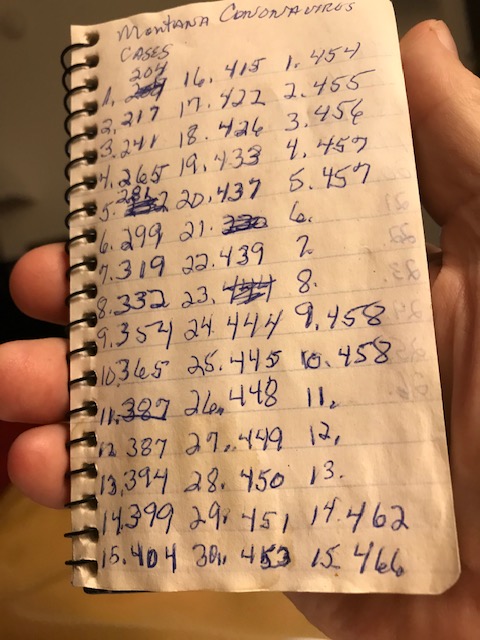 Montana Coronavirus
Cases
204
1. 16. 415 1. 454
2. 217 17. 422 2. 455
3. 241 18. 426 3. 456
4. 265 19. 433 4. 457
281
5. 20. 437 5. 457
6. 299 21. 6.
7. 319 22. 439 7.
8. 332 23. 8.
9. 354 24. 444 9. 458
10. 365 25. 445 10. 458
11. 387 26. 448 11.
12 387 27. 449 12.
13. 394 28. 450 13.
14. 399 29. 451 14. 462
15. 404 30. 453 15. 466